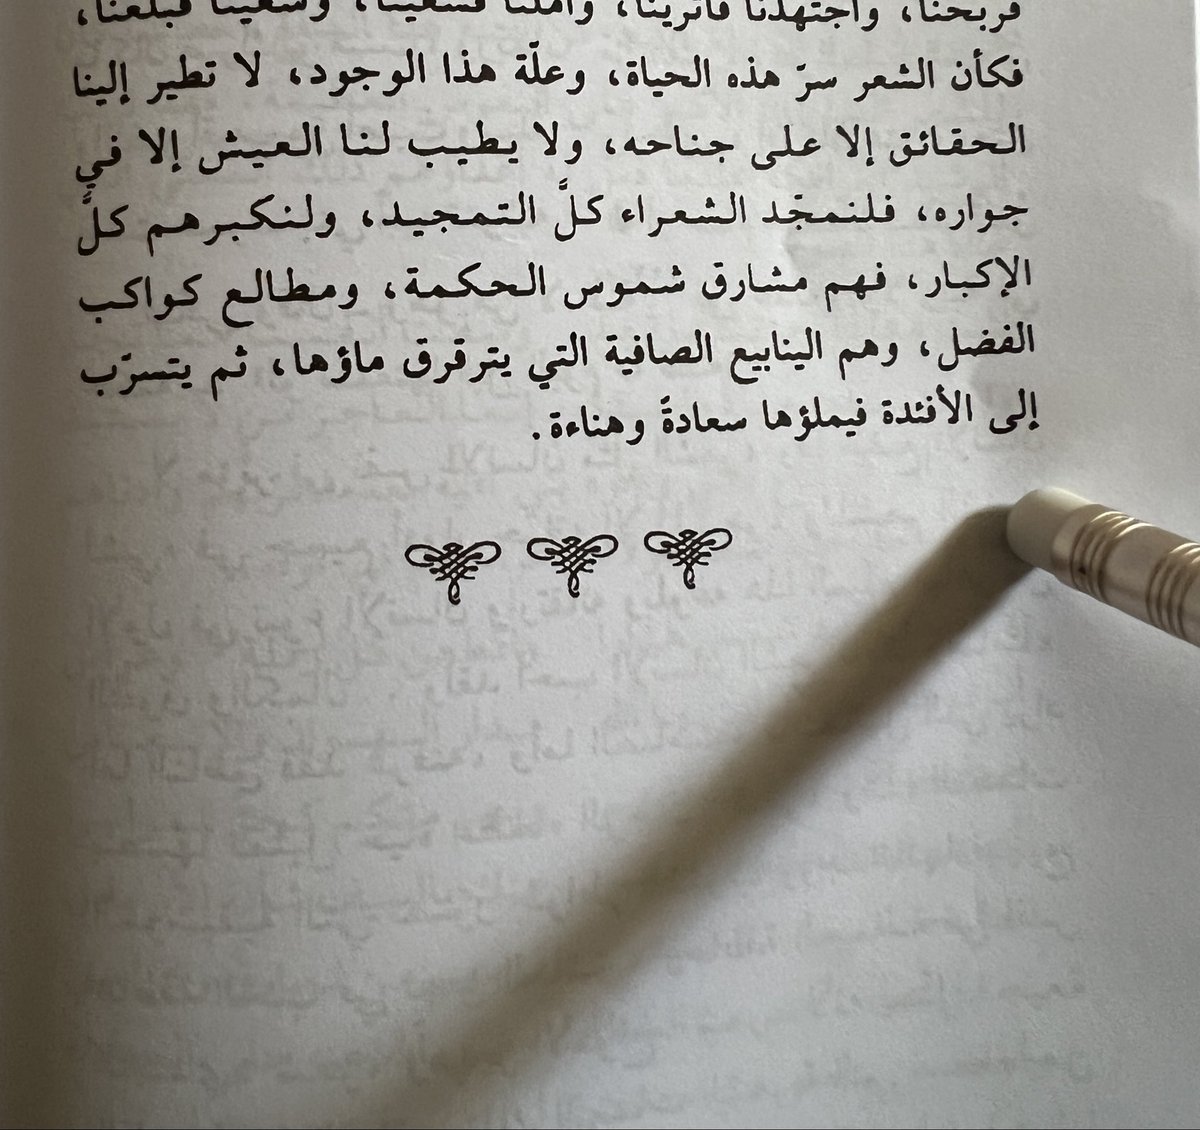 فربحنا، واجتهدنا فأثرينا، وأملنا فسعينا، وسعينا فبلغنا،
فكأن الشعر سرّ هذه الحياة، وعلّة هذا الوجود، لا تطير إلينا
الحقائق إلا على جناحه، ولا يطيب لنا العيش إلا في
جواره، فلنمجّد الشعراء كلَّ التمجيد، ولنكبرهم كلَّ
الإكبار، فهم مشارق شموس الحكمة، ومطالع كواكب
الفضل، وهم الينابيع الصافية التي يترقرق ماؤها، ثم يتسرّب
إلى الأفئدة فيملؤها سعادةً وهناءة.